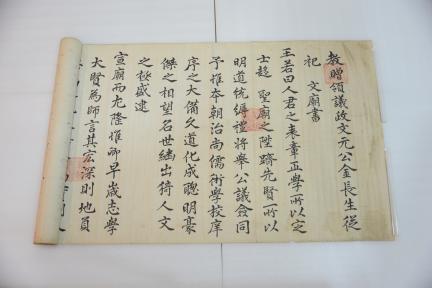 教贈領議政文元公金長生從
祀 文廟書
王若曰人君之表章正學所以定
士趍 聖廟之陞躋先賢所以
明道統縟禮將舉公議僉同
予惟本朝治尚儒術學校庠
序之大備久道化成聰明豪
傑之相望名世繼出猗人文
之極盛逮
宣廟而尤隆惟卿早歲志學
大賢為師言其宏深則地員